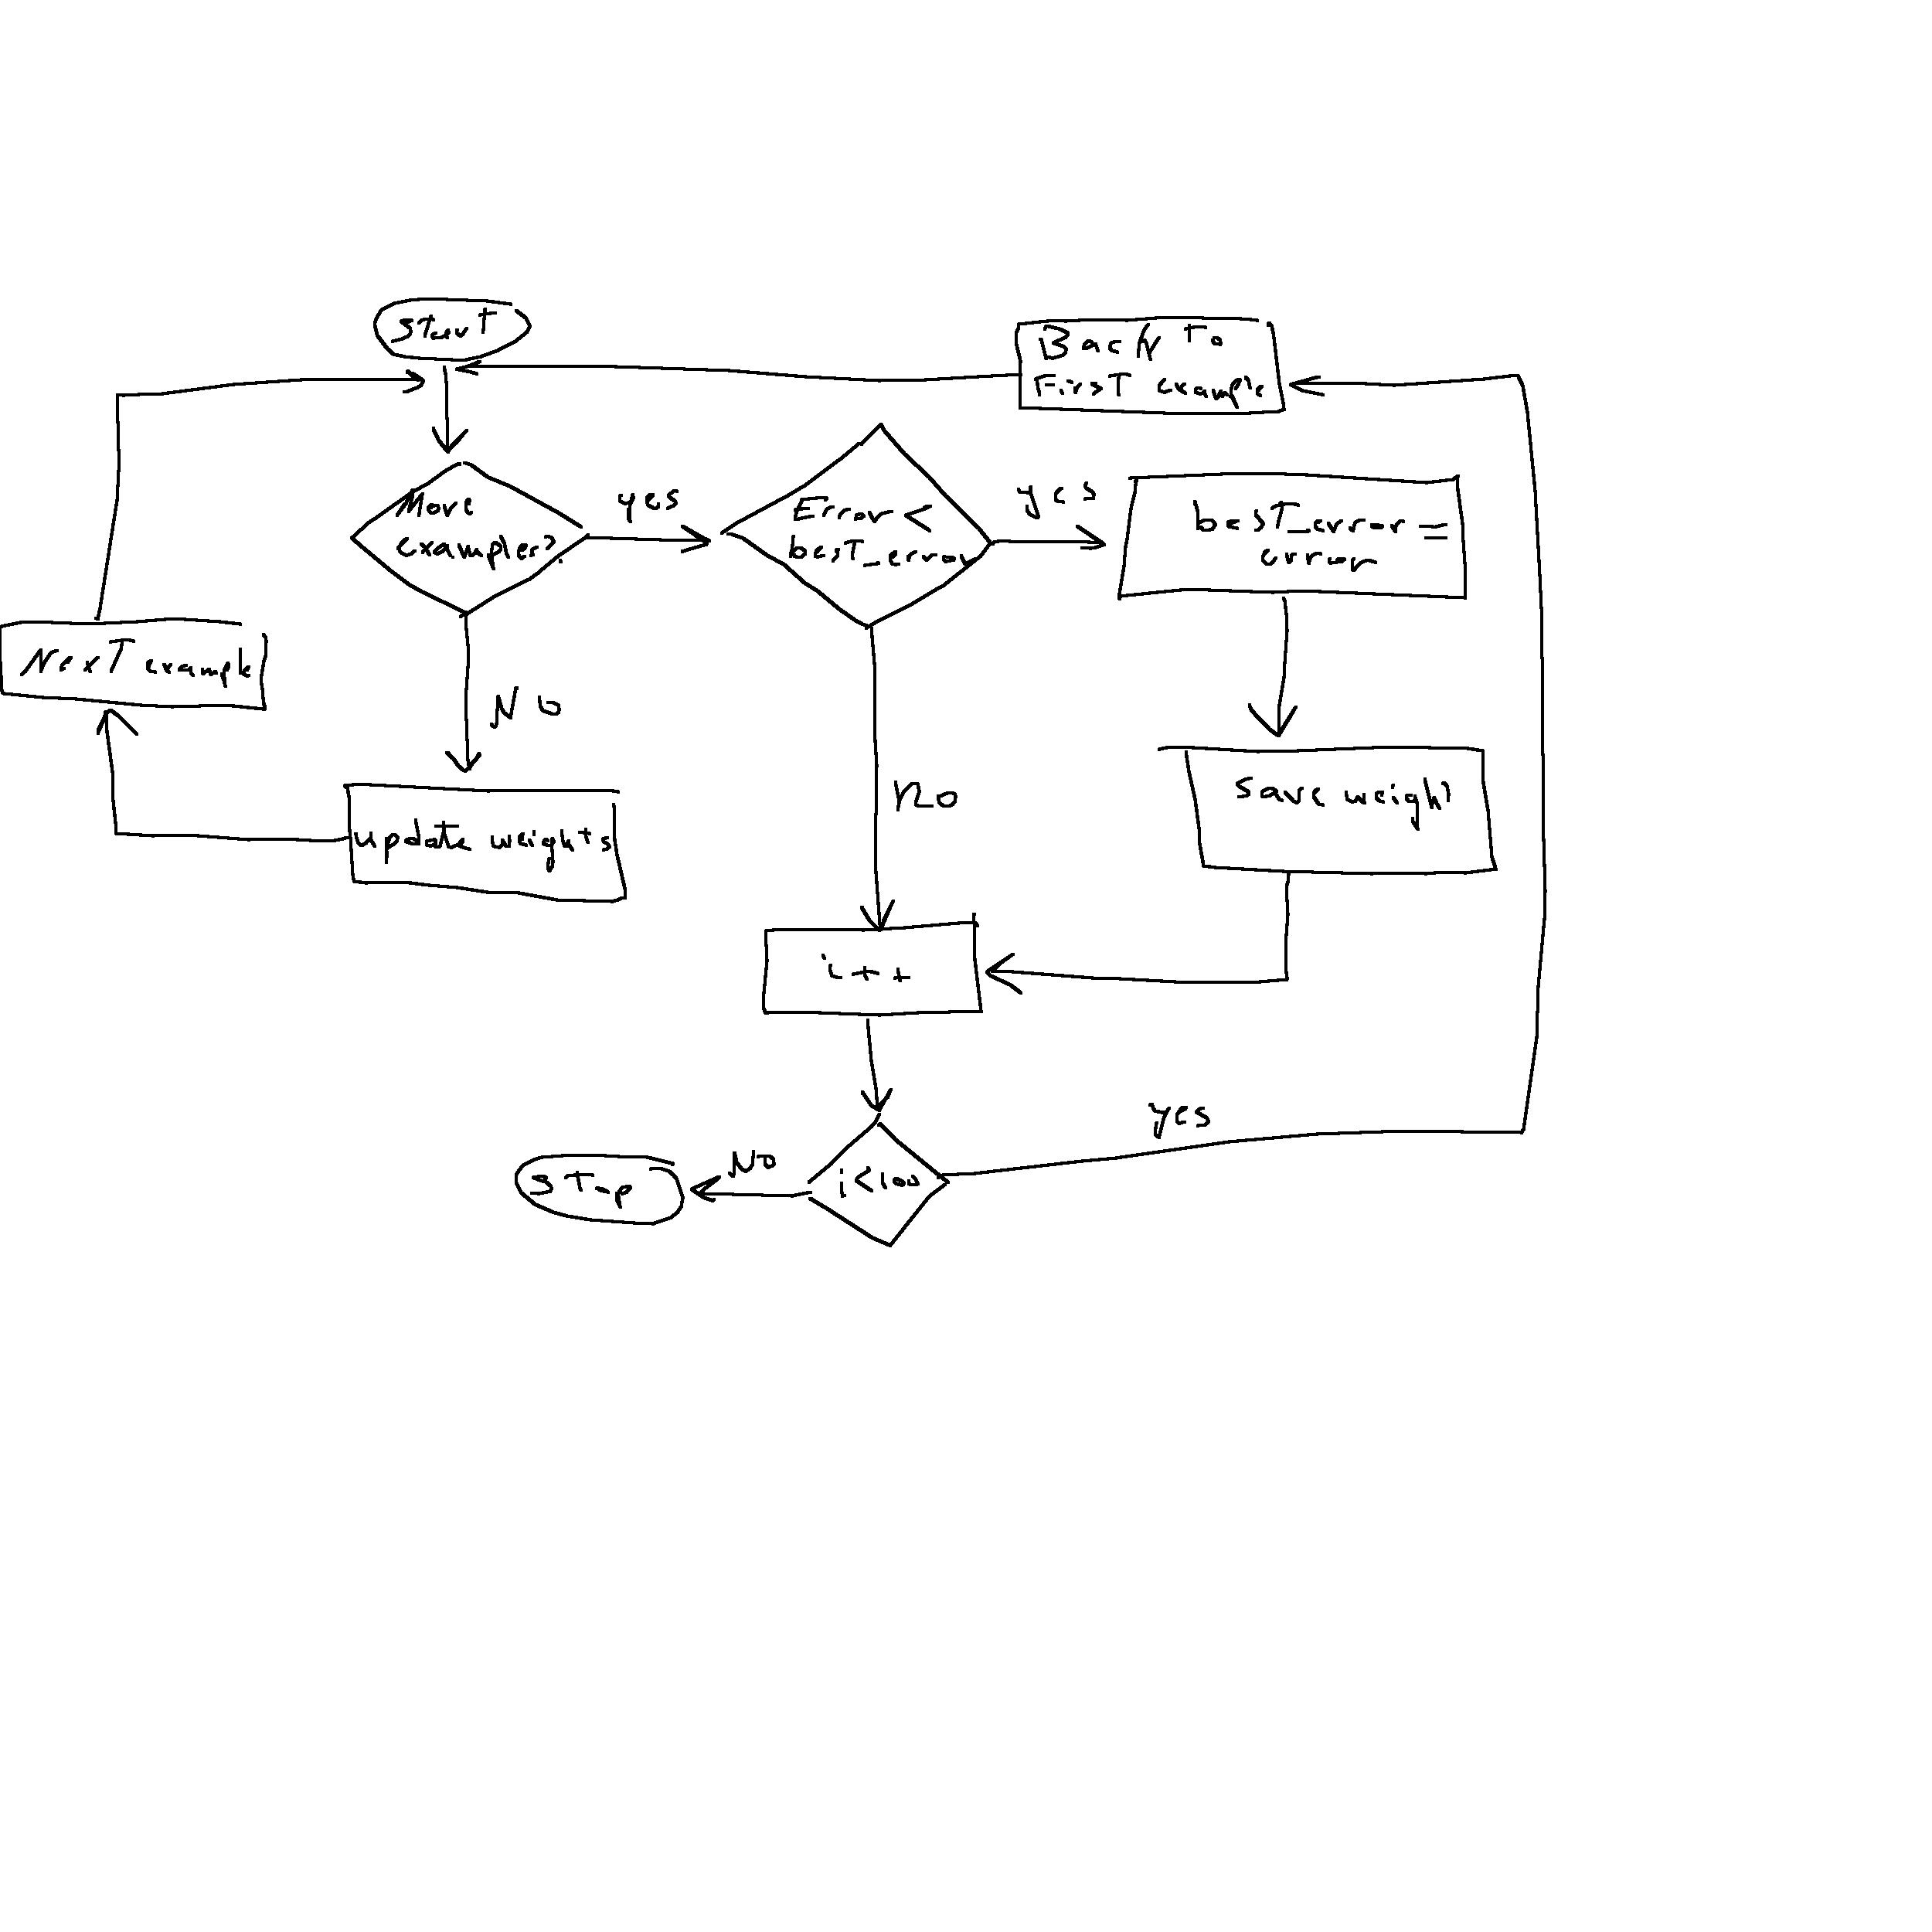 Start
Back to
First example
More
examples?
yes
Error <
best_error
yes
best_error =
error
Next example
No
update weights
no
save weight
i++
yes
i<100
No
Stop